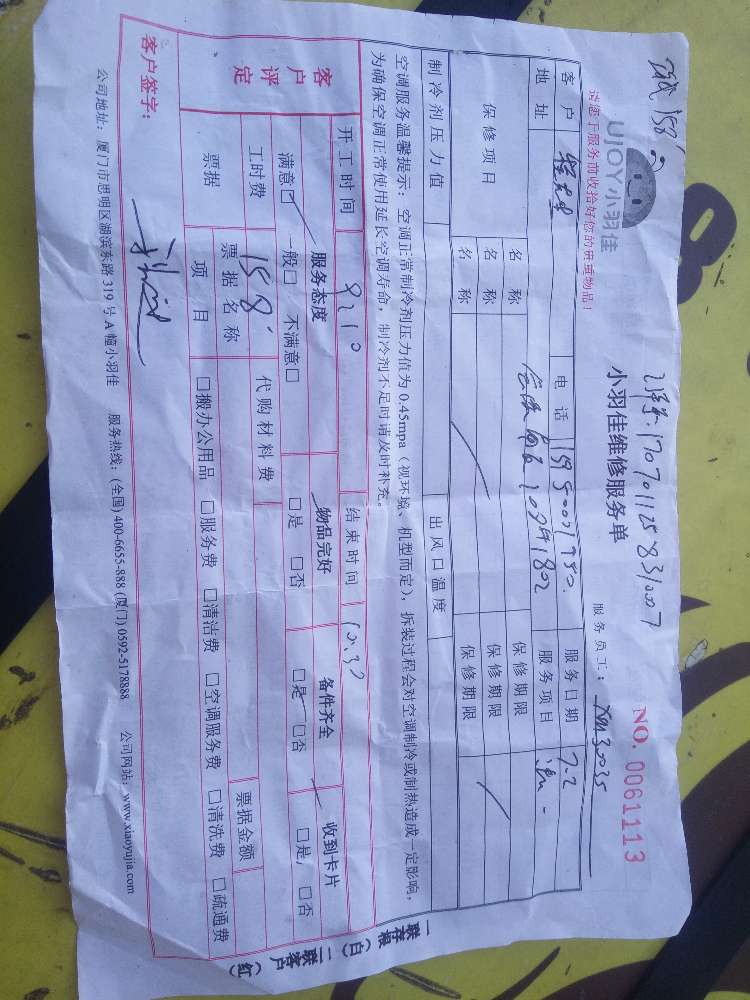 UJOY小羽佳
请您于服务前收拾好您的贵重物品!
小羽佳维修服务单
NO. 0061113
服务员工: XM30035
客户 电话 服务日期 7.2
地址 服务项目
保修项目 名称 保修期限
名称 保修期限
名称 保修期限
制冷剂压力值 出风口温度
空调服务温馨提示: 空调正常制冷剂压力值为 0.45mpa (视环境、机型而定), 拆装过程会对空调制冷或制热造成一定影响,
为确保空调正常使用延长空调寿命, 制冷剂不足时请及时补充。
开工时间 结束时间 10.30
客户评定 服务态度 物品完好 备件齐全 收到卡片
满意□ 一般□ 不满意□ □是 □否 □是 □否 □是, □否
工时费 158 代购材料费
票据 票据名称 票据金额
项目 □搬办公用品 □服务费 □清洁费 □空调服务费 □清洗费 □疏通费
客户签字:
公司地址: 厦门市思明区湖滨东路 319 号 A 幢小羽佳 服务热线: (全国) 400-6655-888 (厦门) 0592-5178888 公司网站: www.xiaoyujia.com
一联存根 (白) 二联客户 (红)